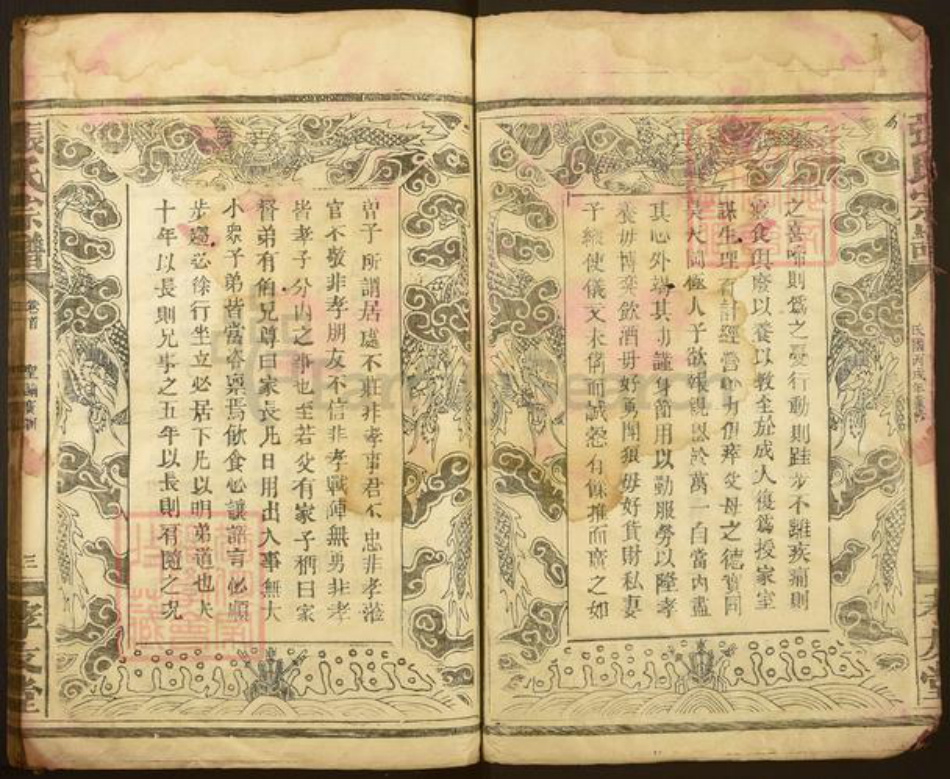 張氏宗譜
民國丙戌年
孝友堂
之喜啼則爲之憂行動則跬步不離疾痛則
寢食俱廢以養以教至於成人復爲授家室
謀生理百計經營心力俱瘁父母之德實同
昊天罔極人子欲報親恩於萬一自當內盡
其心外竭其力謹身節用以勤服勞以隆孝
養毋博奕飲酒毋好勇鬭狠毋好貨財私妻
子縱使儀文未備而誠慤有餘推而廣之如
曾子所謂居處不莊非孝事君不忠非孝蒞
官不敬非孝朋友不信非孝戰陣無勇非孝
皆孝子分內之事也至若父有家子稱曰家
督弟有伯兄尊曰家長凡日用出入事無大
小眾子弟皆當咨稟焉飲食必讓語言必順
步趨必徐行坐立必居下凡以明弟道也夫
十年以長則兄事之五年以長則肩隨之况
張氏宗譜
卷首
聖諭廣訓
三
孝友堂